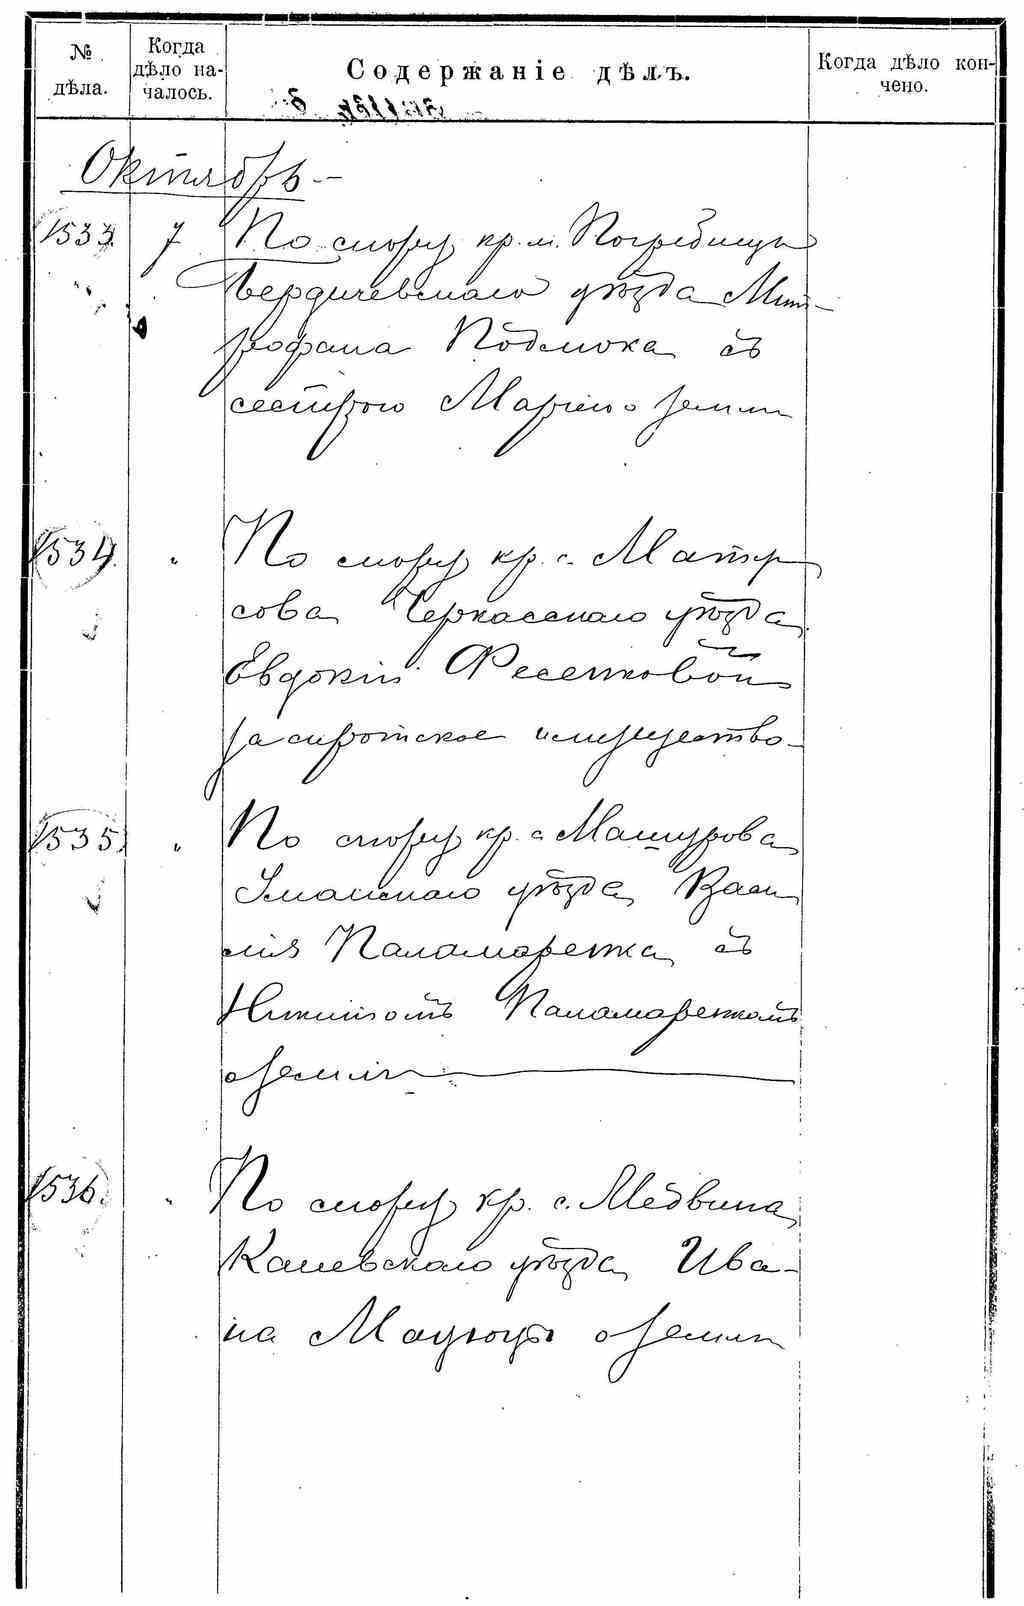 № дѣла.
Когда дѣло на-
чалось.
Содержаніе дѣлъ.
Когда дѣло кон-
чено.
Октябрь
1533. 7 По спору кр. м. Погребищъ
Бердичевскаго уѣзда Мит-
рофана Подмока съ
сестрою Маріею о земли
1534. " По спору кр. с. Мату
сова Черкасскаго уѣзда
Евдокіи Фесенковой
за сиротское имущество
1535. " По спору кр. с Машурова
Уманскаго уѣзда Васи
лія Паламаренка съ
Никитомъ Паламаренкомъ
о земли
1536. " По спору кр. с. Медвина
Каневскаго уѣзда Ива-
на Мацюты о земли